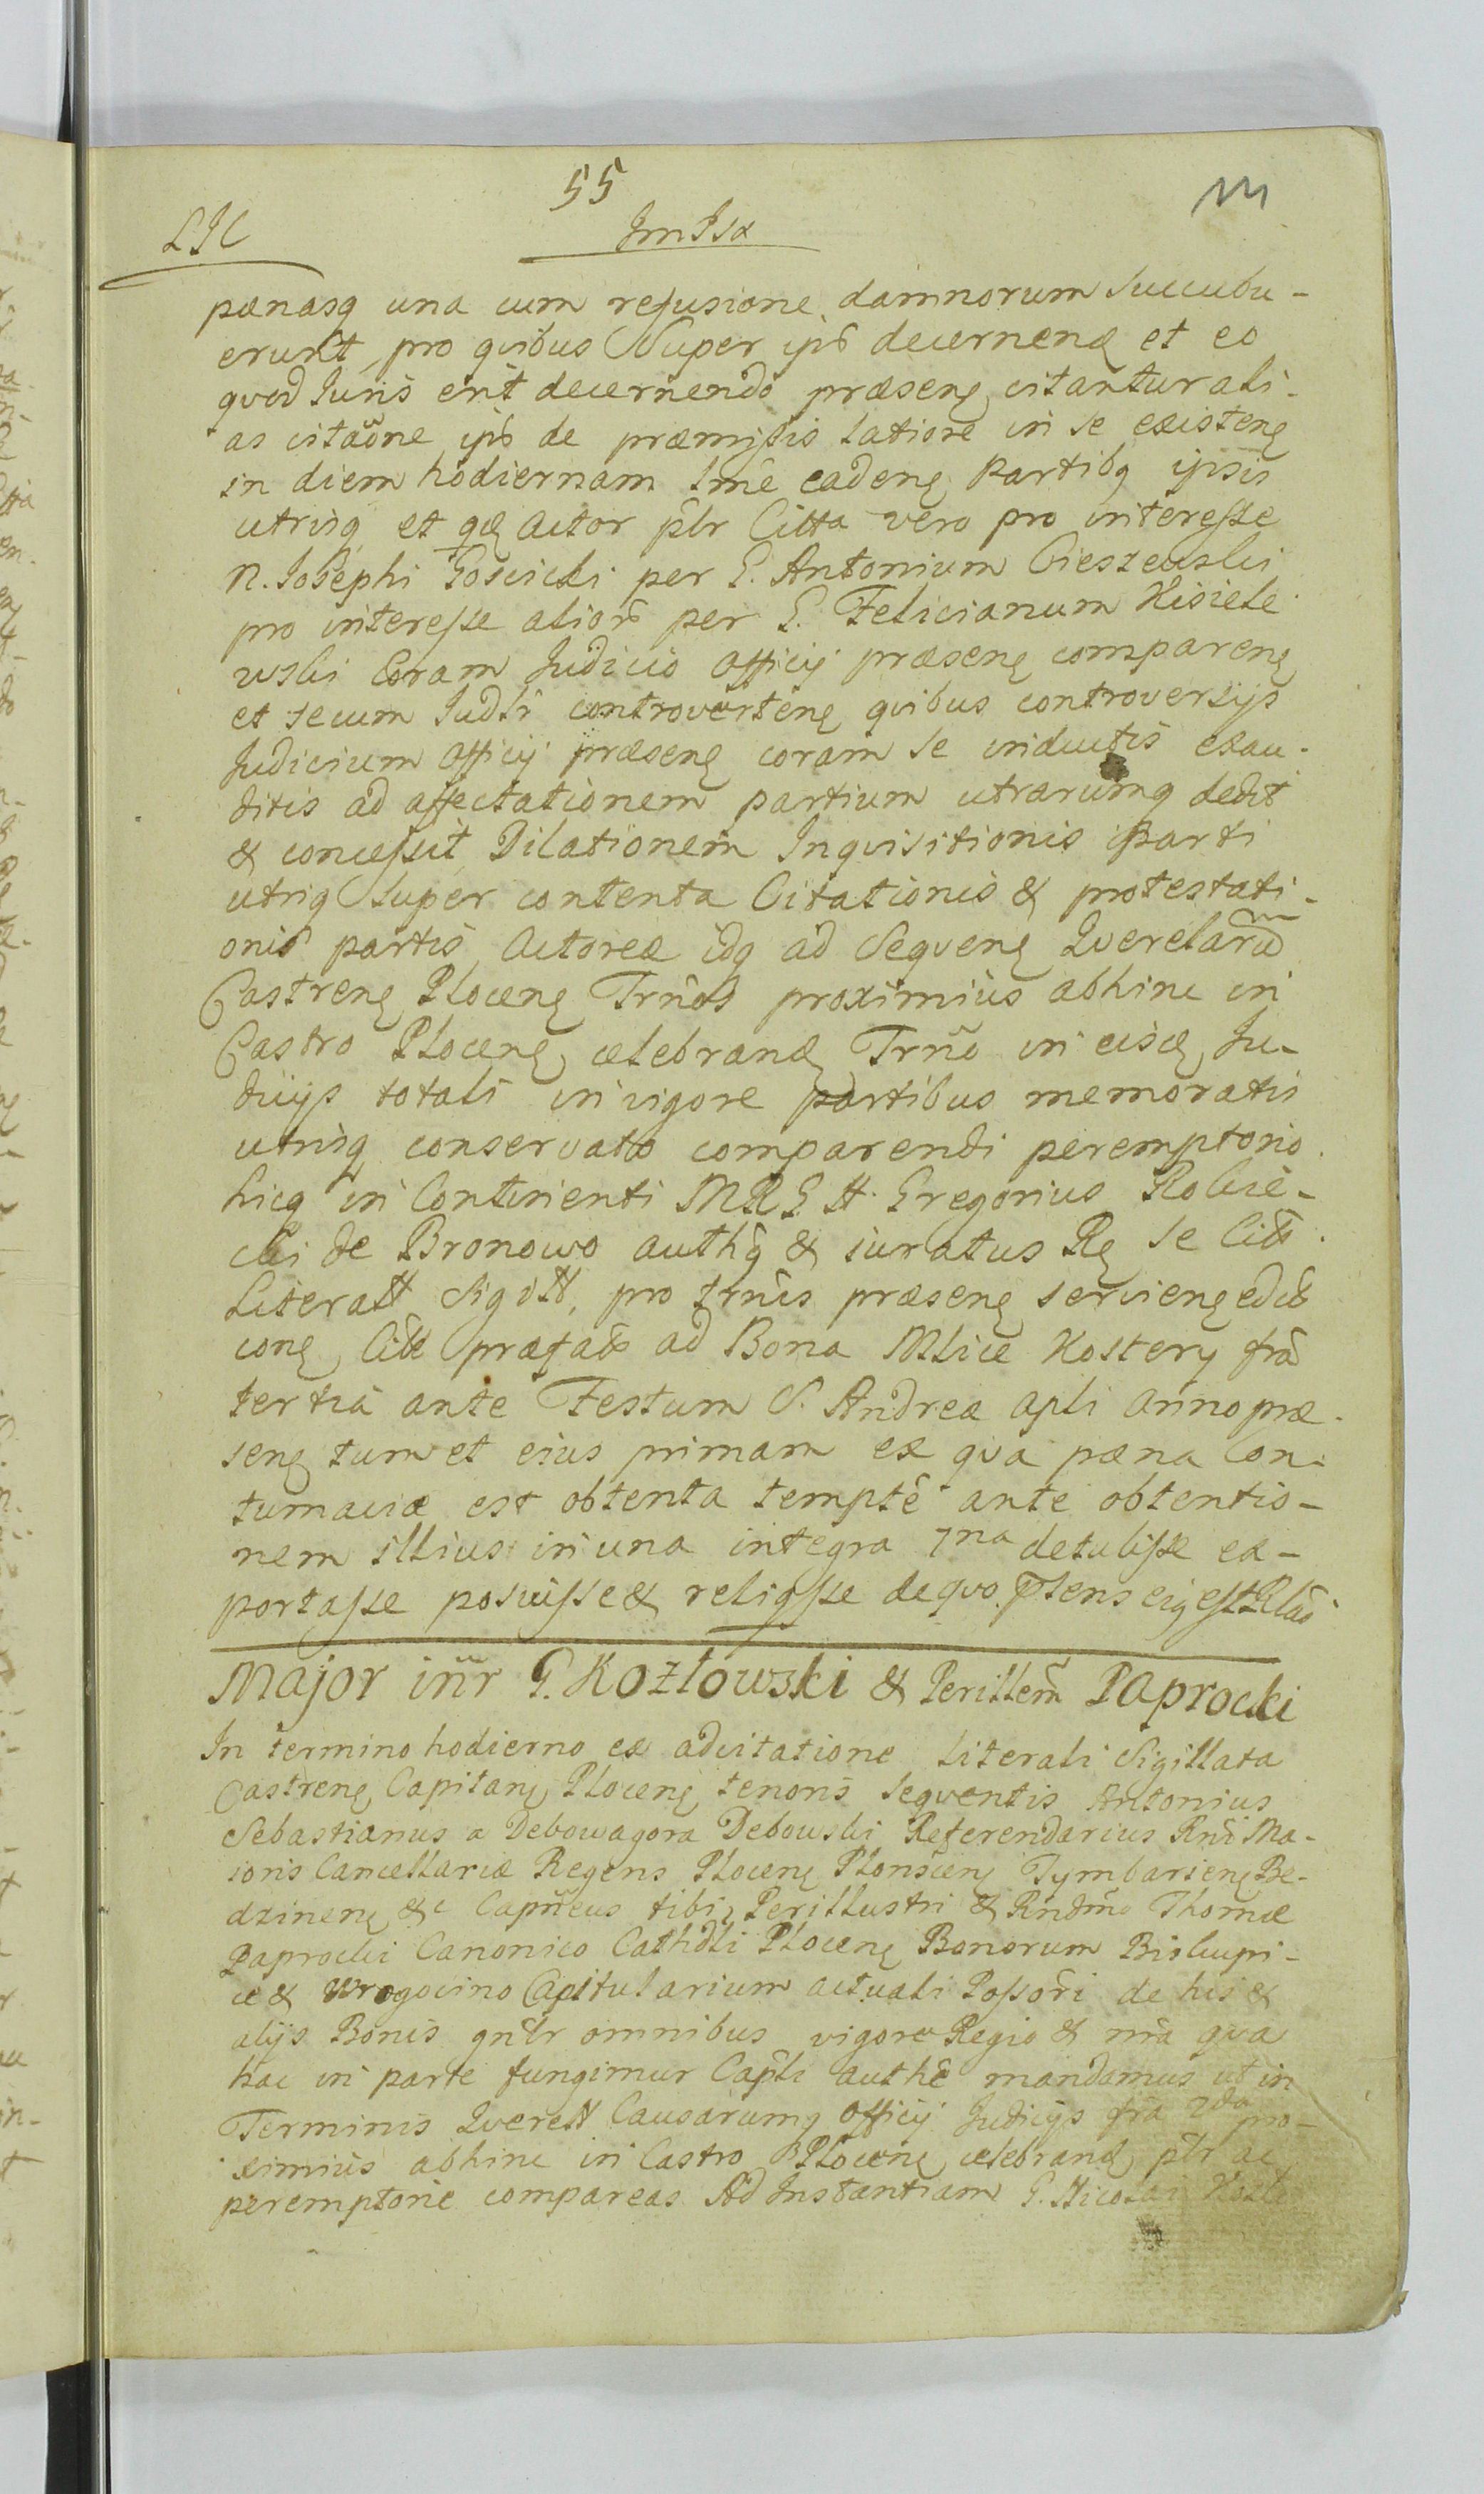 55
111
LIC
pœnasq una cum refusione damnorum succubu-
erunt pro qvibus Super ipõ decernenđ et eo
qvod Iuris erit decernendo præsenę citantur ali-
as citaõne ipõ de præmissis latiore in se existenę
in diem hodiernam eadenę Partibq ipsis
utrisq et Actor plr Citta vero pro interesse
N. Iosephi Goscicki per G. Antonium Cieszewski
pro interesse alior per G. Felicianum Kisiele
wski Coram Judicio Officij præsenę comparenę
et secum Judli controvertenę qvibus controversijs
Judicium Officij præsenę coram se inductis exau-
ditis ad affectationem partium utrarumq dedit
& concessit Dilationem Inqvisitionis Parti
utriq Super contenta Citationis & protestati-
onis partis Actoreæ idq ad Seqvenę Qverelarũ
Castrenę Plocenę Trños proximius abhinc in
Castro Plocenę celebranđ Trño in eisđ Ju-
dicijs totali in vigore partibus memoratis
utrisq conservato comparendi peremptorio
hicq in Continenti MRG H. Gregorius Robie-
cki de Bronowo authq & iuratus Rę se Citt
Literatt Sigitt, pro trnis præsenę servienę
conę Citt præfatt ad Bona Mlice Kostery frã
tertia ante Festum S. Andreæ apli Anno præ-
senę tum et eius primam ex qva pœna Con-
tumaciæ est obtenta tempte ante obtentio-
nem illius in una integra 7na detulisse ex-
portasse posuisse & reliqsse de qvo Ptens eiq est Rlaõ
Major iñr G. Kozłowski & Perillem Paprocki
In termino hodierno ex adcitatione Literali Sigillata
Castrenę Capitanę Plocenę tenoris seqventis Antonius
Sebastianus a Debowagora Debowski Referendarius Rni Ma-
ioris Cancellariæ Regens Plocenę Plonscenę Tymbarsenę Be-
dzinenę &c Capñeus tibi Perillustri & Rndmo Thomæ
Paprocki Canonico Cathdli Plocenę Bonorum Biskupi-
ce & Wrogocino Capitularium actuali Possori de his &
alijs Bonis gnlr omnibus vigore Regio & nra qva
hac in parte fungimur Capli authe mandamus ut in
Terminis Qverell Causarumq Officij Judicijs fra 2da pro-
ximius abhinc in Castro Plocenę celebranđ plr ac
peremptorie compareas Ad Instantiam G. Nicolai Kozło